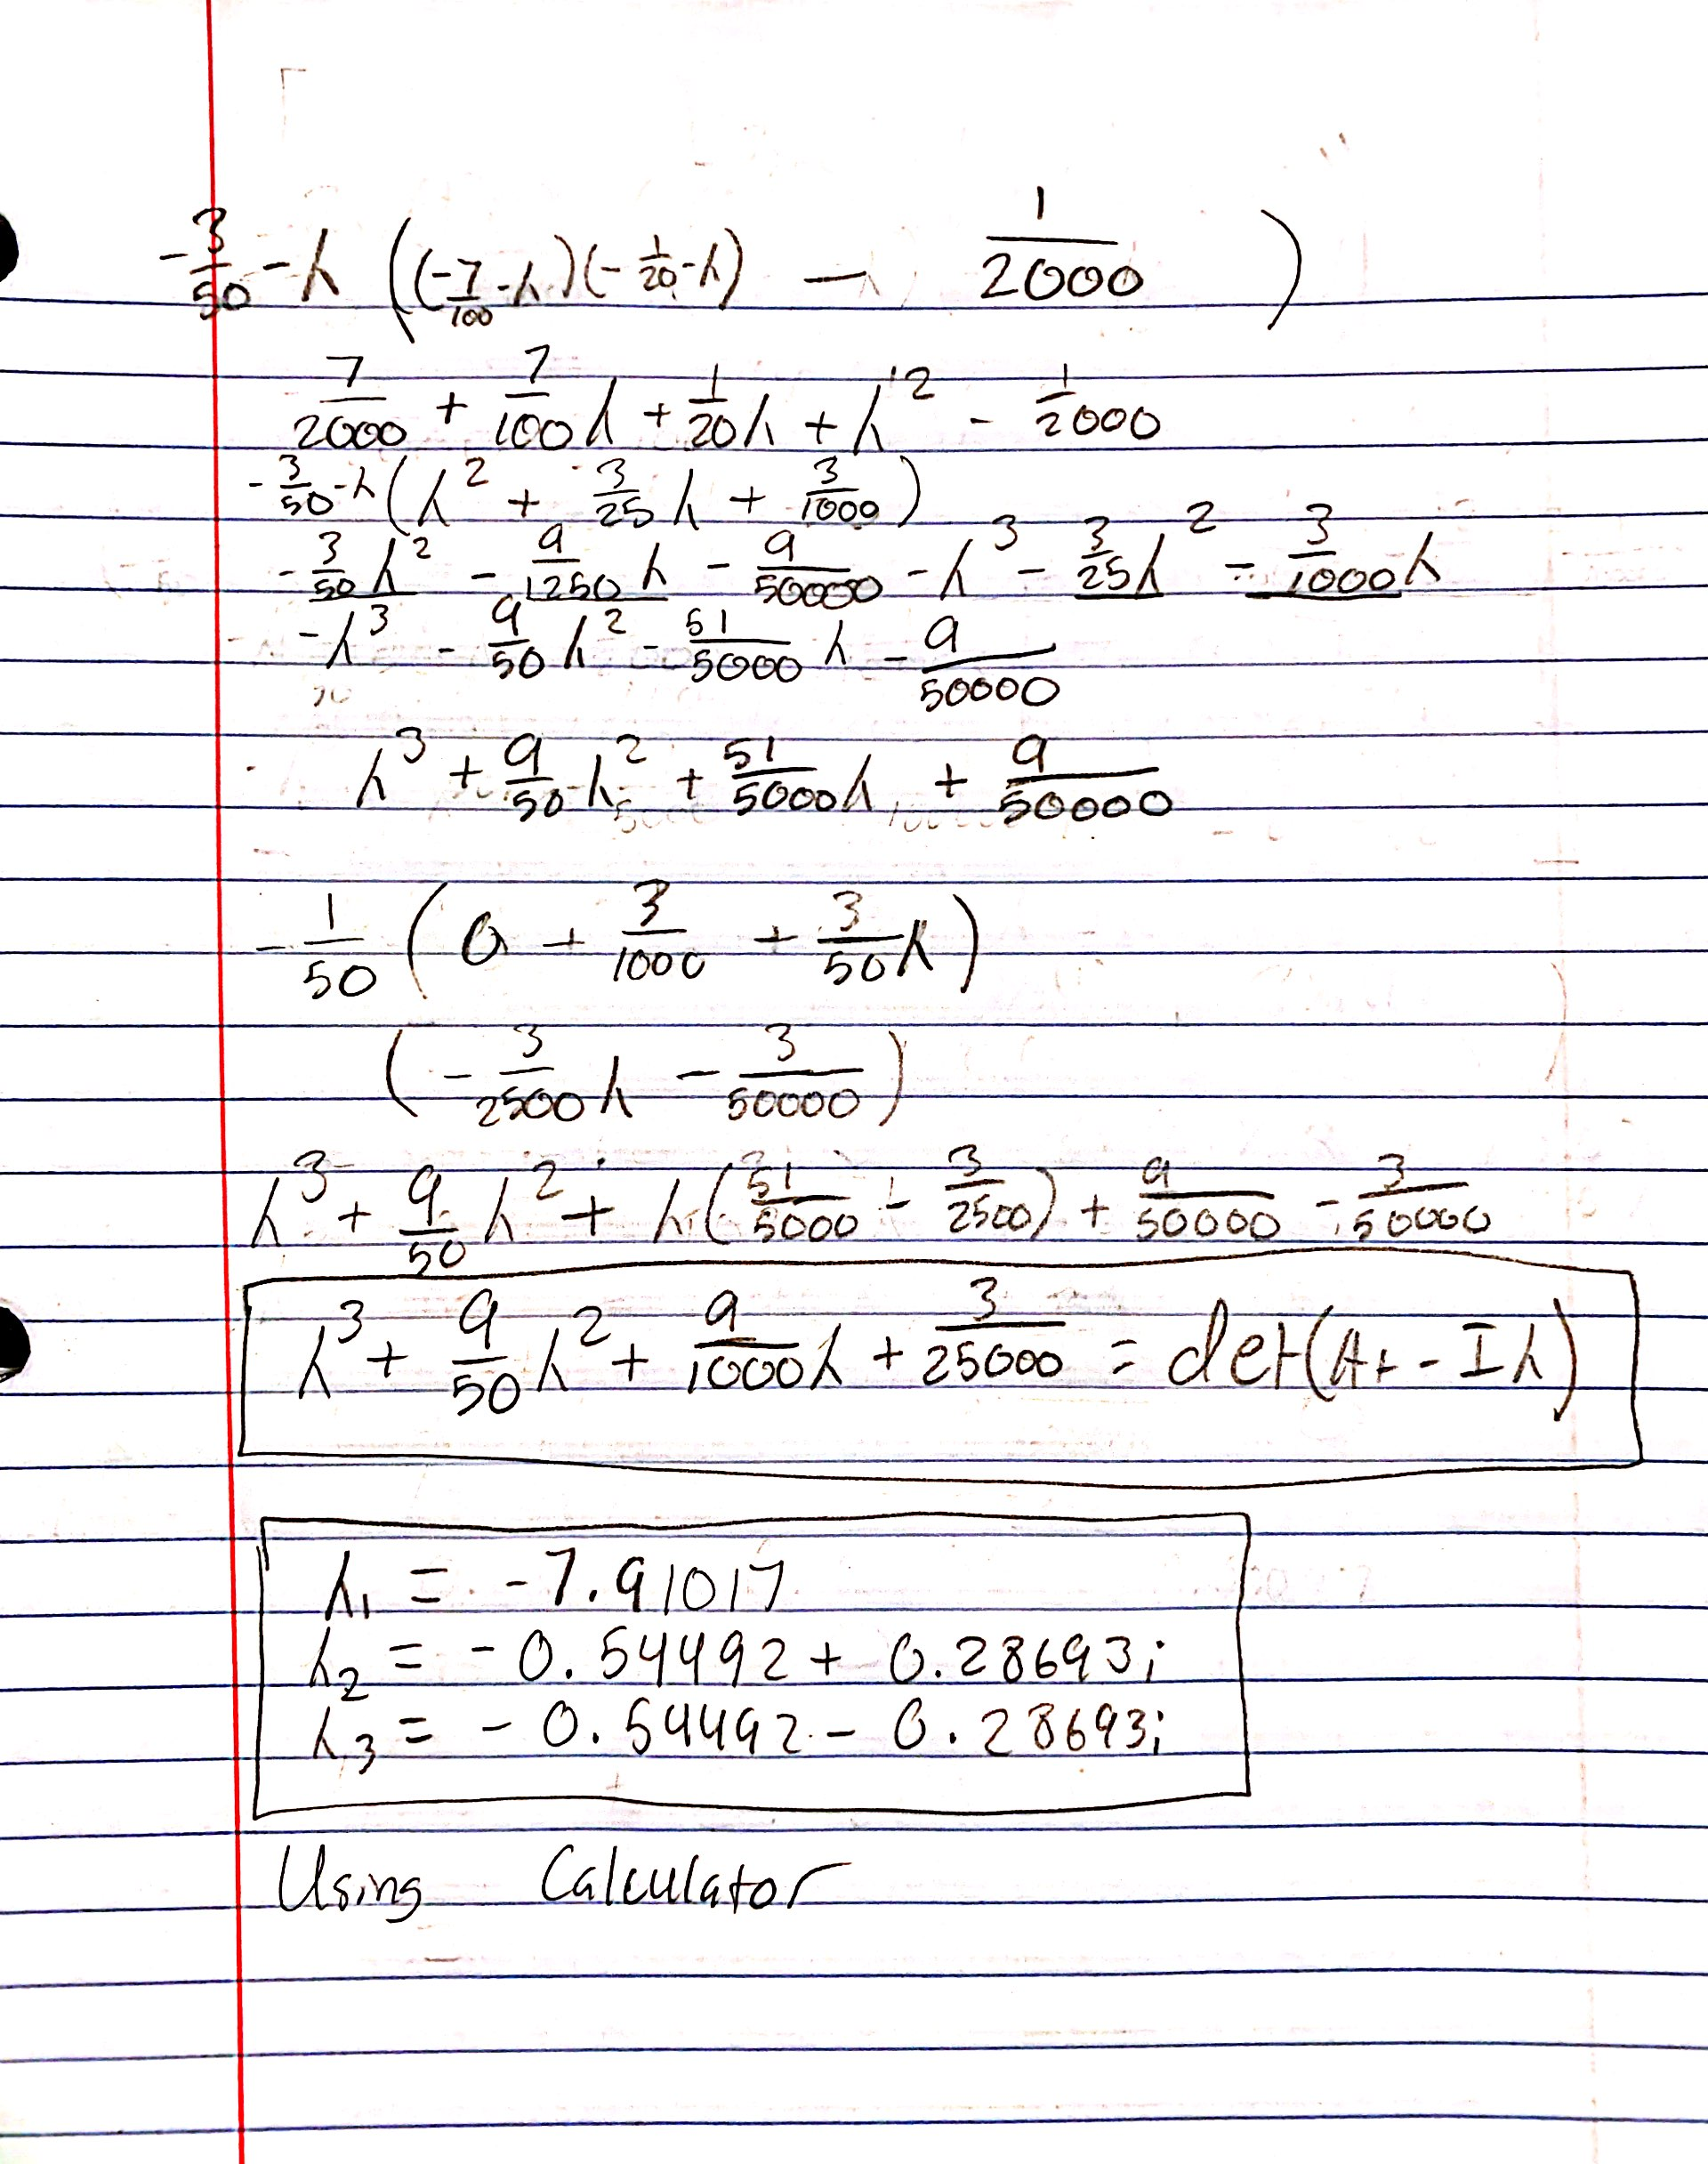 -3/50 - λ ((-7/100 - λ)(-1/20 - λ) - 1/2000)
7/2000 + 7/100 λ + 1/20 λ + λ² - 1/2000
-3/50 - λ (λ² + 3/25 λ + 3/1000)
-3/50 λ² - 9/1250 λ - 9/50000 - λ³ - 3/25 λ² - 3/1000 λ
-λ³ - 9/50 λ² - 51/5000 λ - 9/50000
λ³ + 9/50 λ² + 51/5000 λ + 9/50000
-1/50 (0 + 3/1000 + 3/50 λ)
(-3/2500 λ - 3/50000)
λ³ + 9/50 λ² + λ(51/5000 - 3/2500) + 9/50000 - 3/50000
λ³ + 9/50 λ² + 9/1000 λ + 3/25000 = det(Ar - Iλ)
λ₁ = -7.91017
λ₂ = -0.54492 + 0.28693i
λ₃ = -0.54492 - 0.28693i
Using Calculator